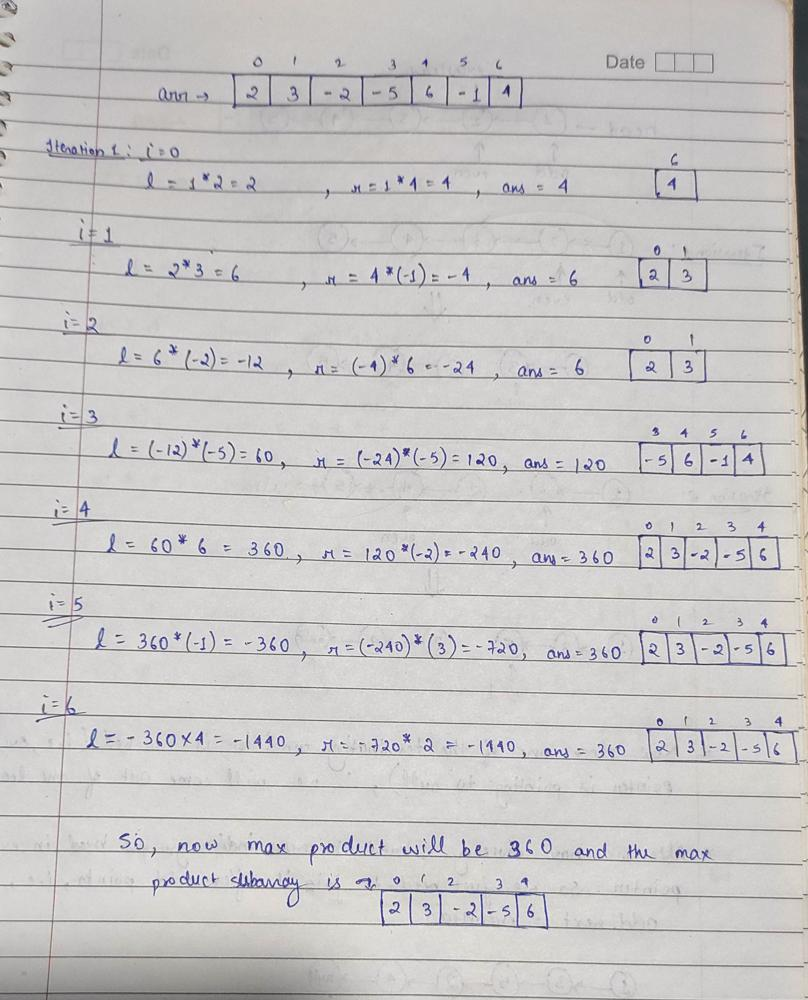 Date
0 1 2 3 4 5 6
arr → 2 3 -2 -5 6 -1 4
Iteration 1: i=0
6
l = 1*2 = 2 , r = 1*4 = 4 , ans = 4 4
i=1
0 1
l = 2*3 = 6 , r = 4*(-1) = -4 , ans = 6 2 3
i=2
0 1
l = 6*(-2) = -12 , r = (-4)*6 = -24 , ans = 6 2 3
i=3
3 4 5 6
l = (-12)*(-5) = 60 , r = (-24)*(-5) = 120 , ans = 120 -5 6 -1 4
i=4
0 1 2 3 4
l = 60*6 = 360 , r = 120*(-2) = -240 , ans = 360 2 3 -2 -5 6
i=5
0 1 2 3 4
l = 360*(-1) = -360 , r = (-240)*(3) = -720 , ans = 360 2 3 -2 -5 6
i=6
0 1 2 3 4
l = -360×4 = -1440 , r = -720*2 = -1440 , ans = 360 2 3 -2 -5 6
So, now max product will be 360 and the max
product subarray is → 0 1 2 3 4
2 3 -2 -5 6